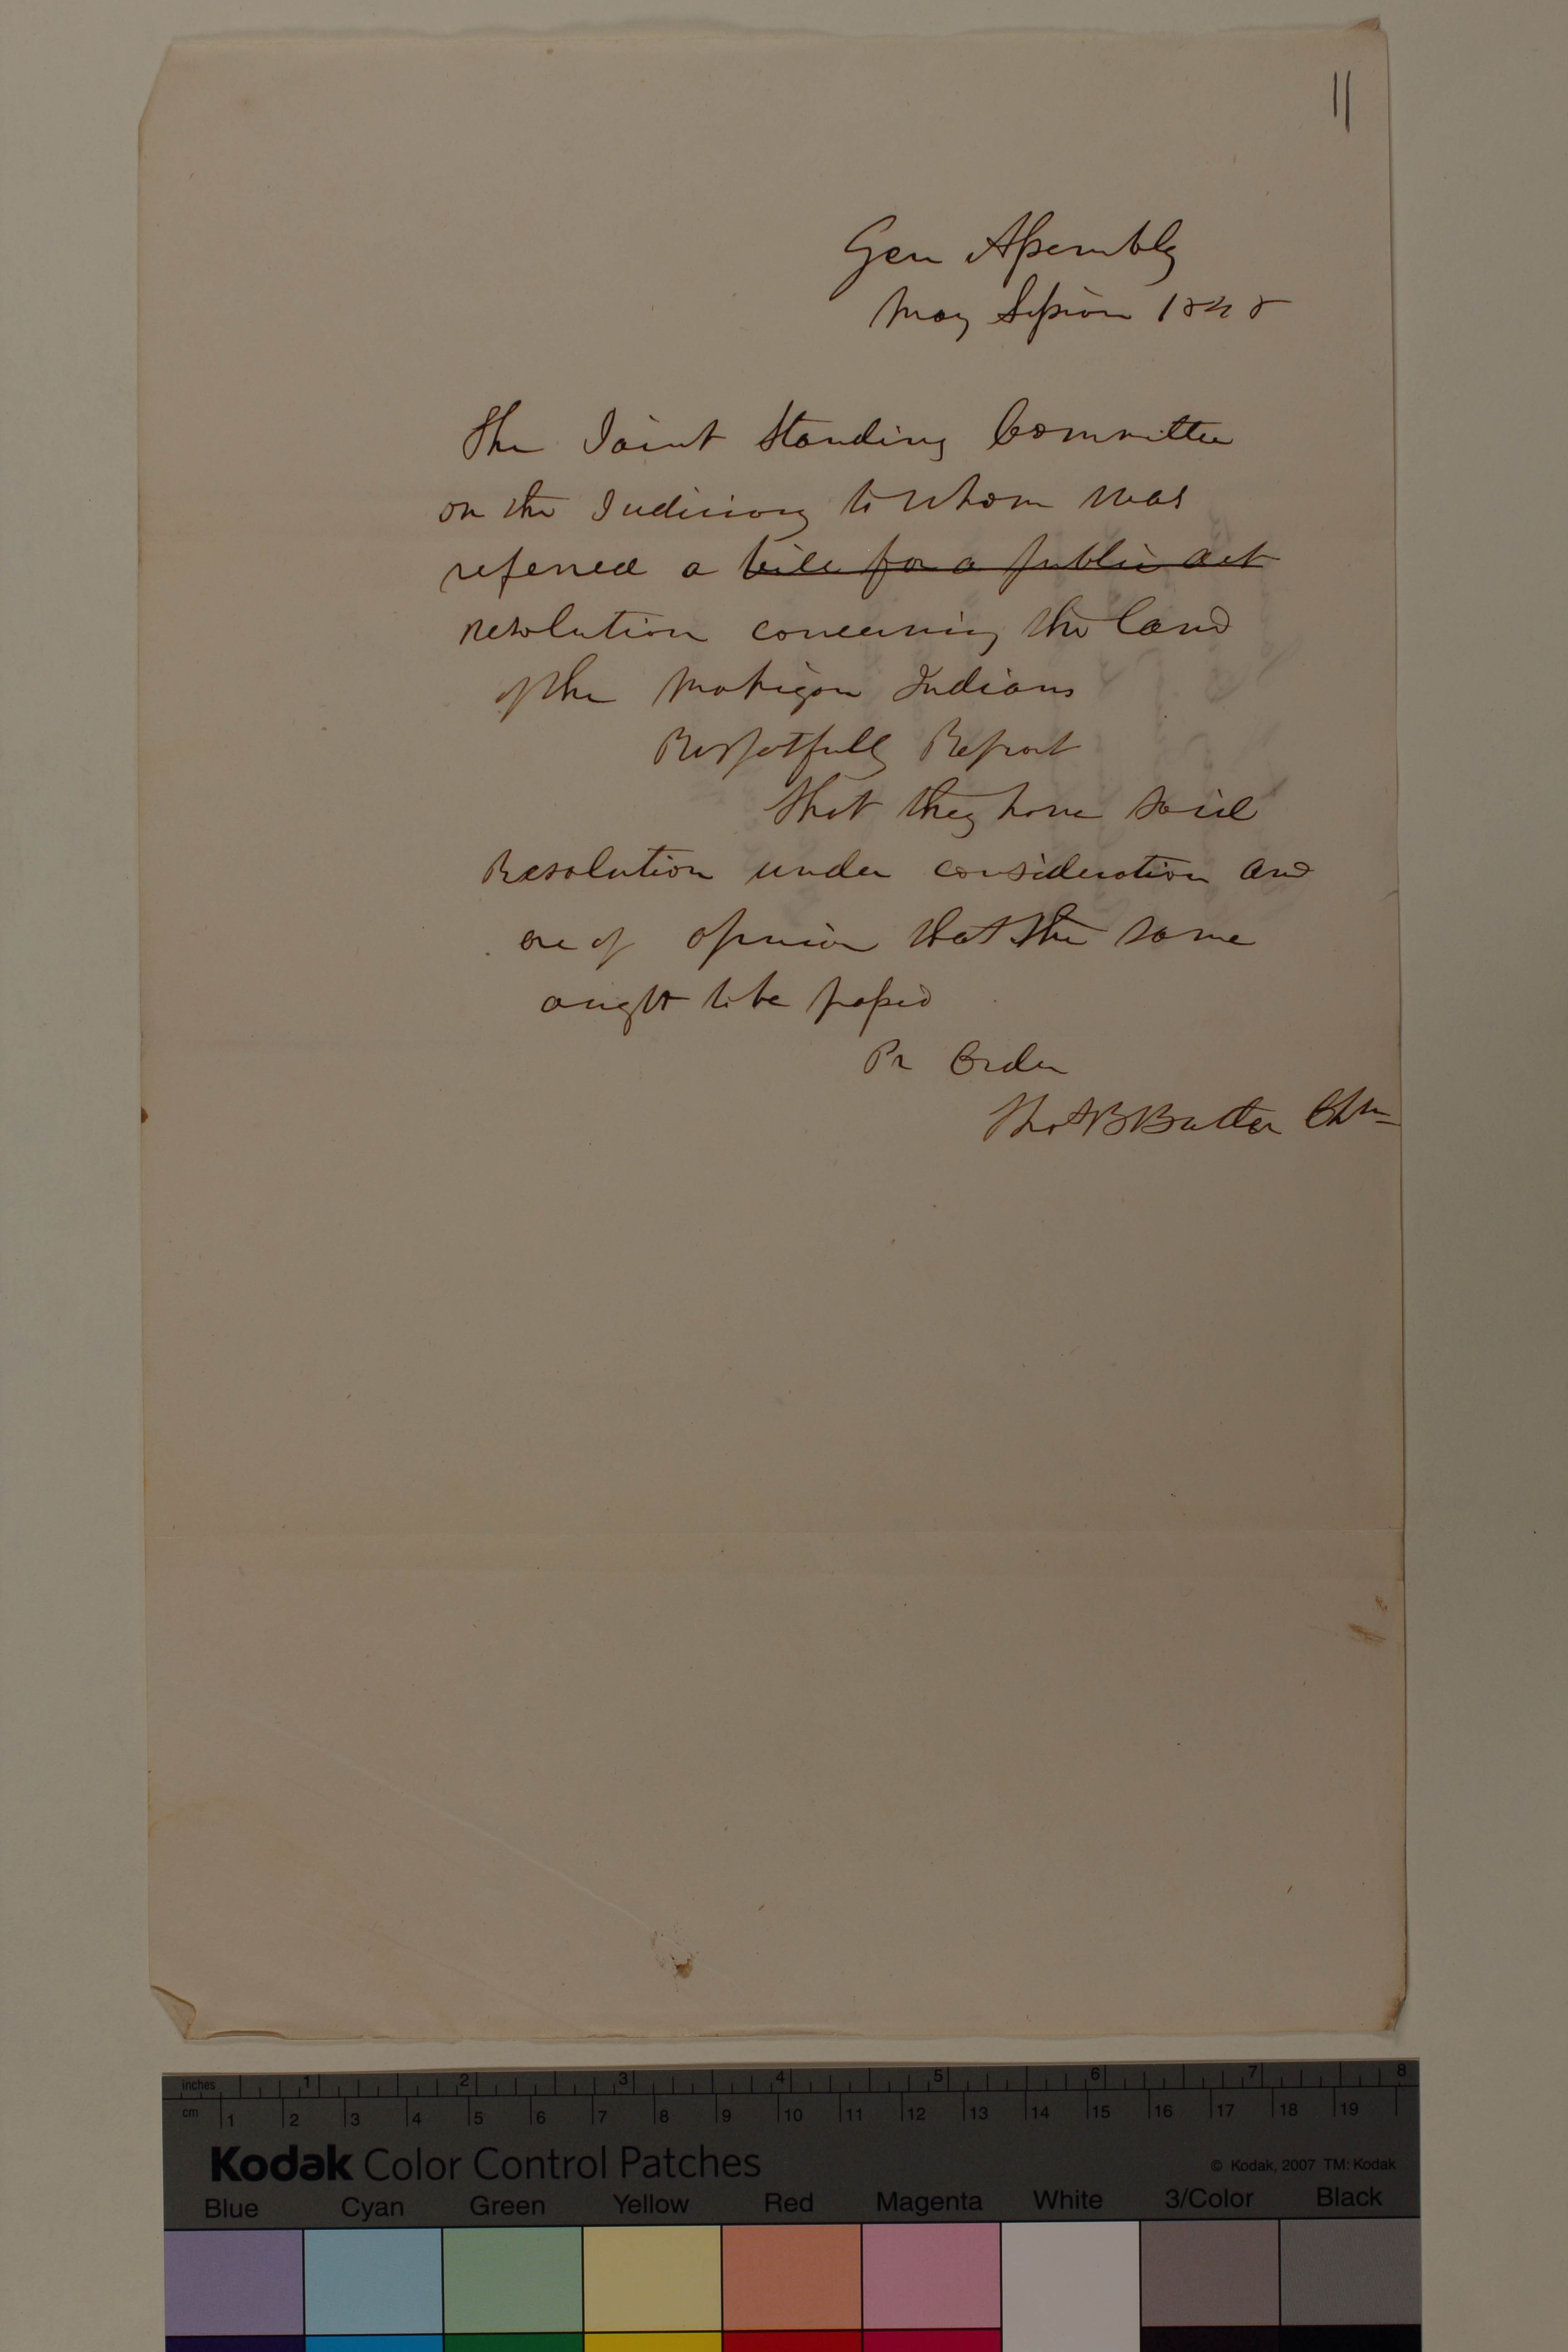 11
Gen Assembly
May Session 1848
The Joint Standing Committee
on the Judiciary to whom was
referred a bill for a public act
resolution concerning the land
of the Mohigan Indians
Respetfully Report
that they have said
Resolution under consideration and
are of opinion that the same
ought to be passed
Pr Order
Tho B Butler Chm
inches 1 2 3 4 5 6 7 8
cm 1 2 3 4 5 6 7 8 9 10 11 12 13 14 15 16 17 18 19
Kodak Color Control Patches
© Kodak, 2007 TM: Kodak
Blue Cyan Green Yellow Red Magenta White 3/Color Black